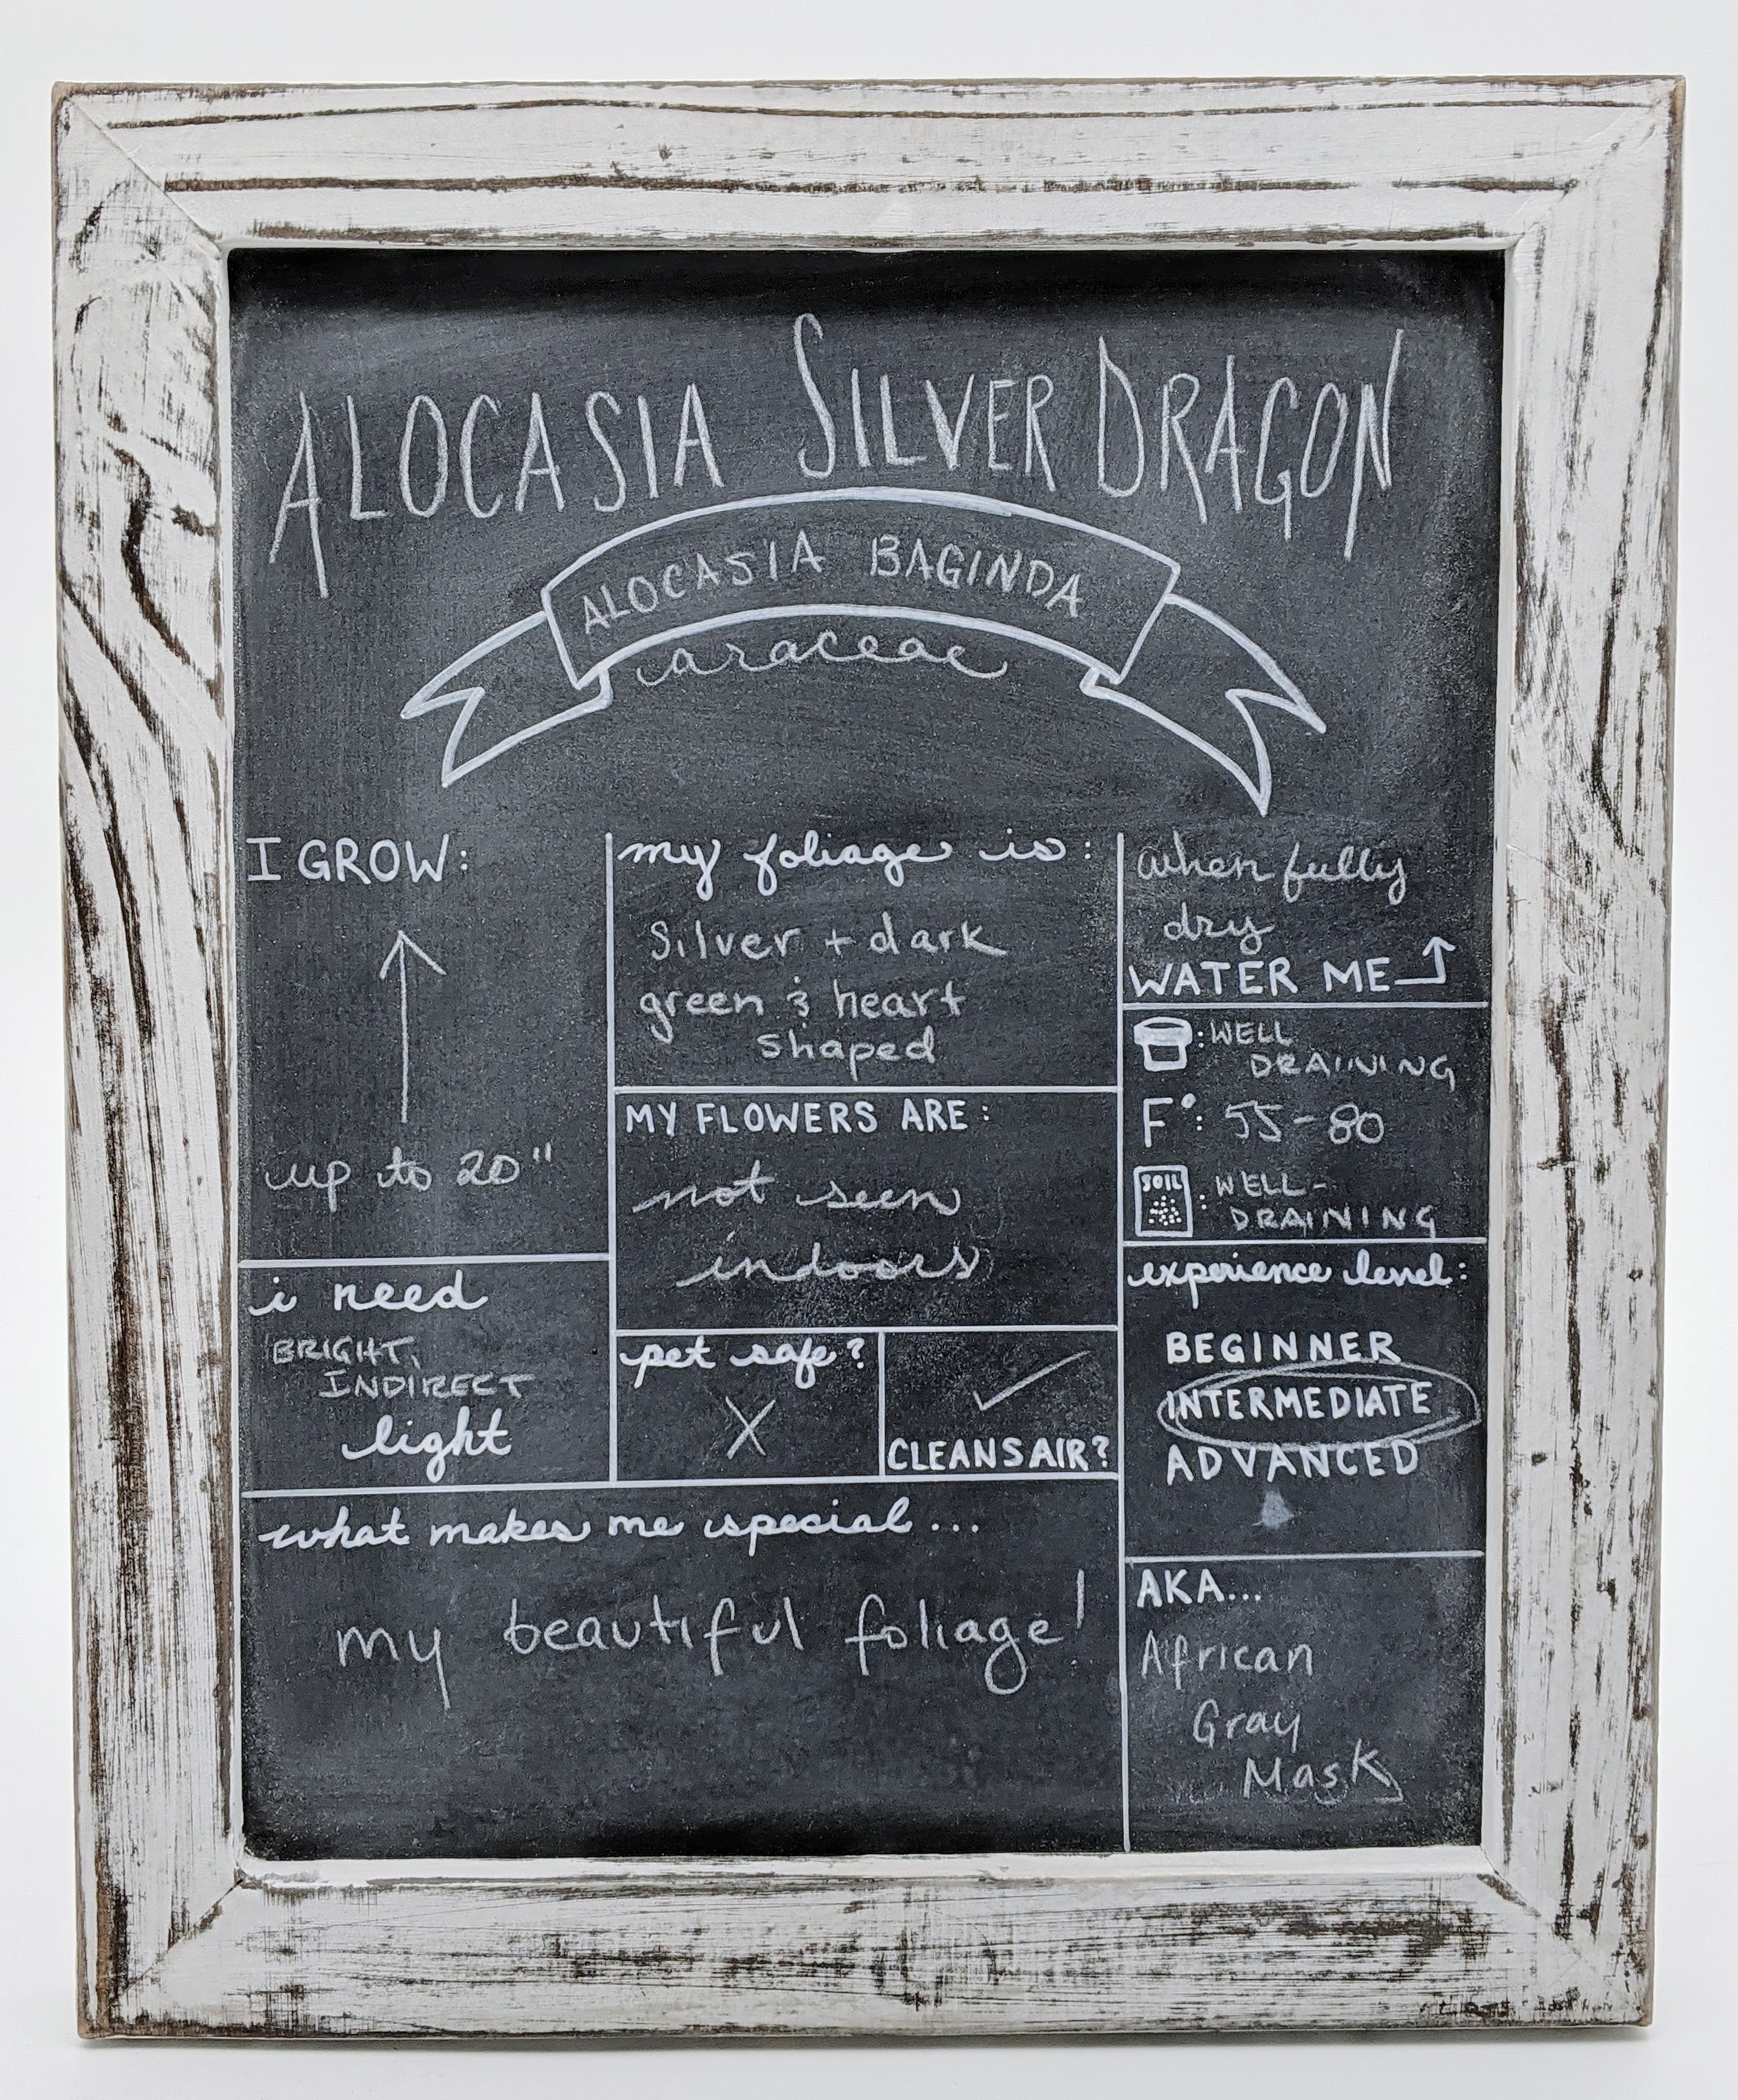 ALOCASIA SILVER DRAGON
ALOCASIA BAGINDA
araceae
I GROW:
up to 20"
i need
BRIGHT,
INDIRECT
light
my foliage is:
Silver + dark
green & heart
shaped
MY FLOWERS ARE:
not seen
indoors
pet safe?
X
✓
CLEANS AIR?
when fully
dry
WATER ME
: WELL
DRAINING
F°: 55-80
SOIL : WELL-
DRAINING
experience level:
BEGINNER
INTERMEDIATE
ADVANCED
what makes me special...
my beautiful foliage!
AKA...
African
Gray
Mask